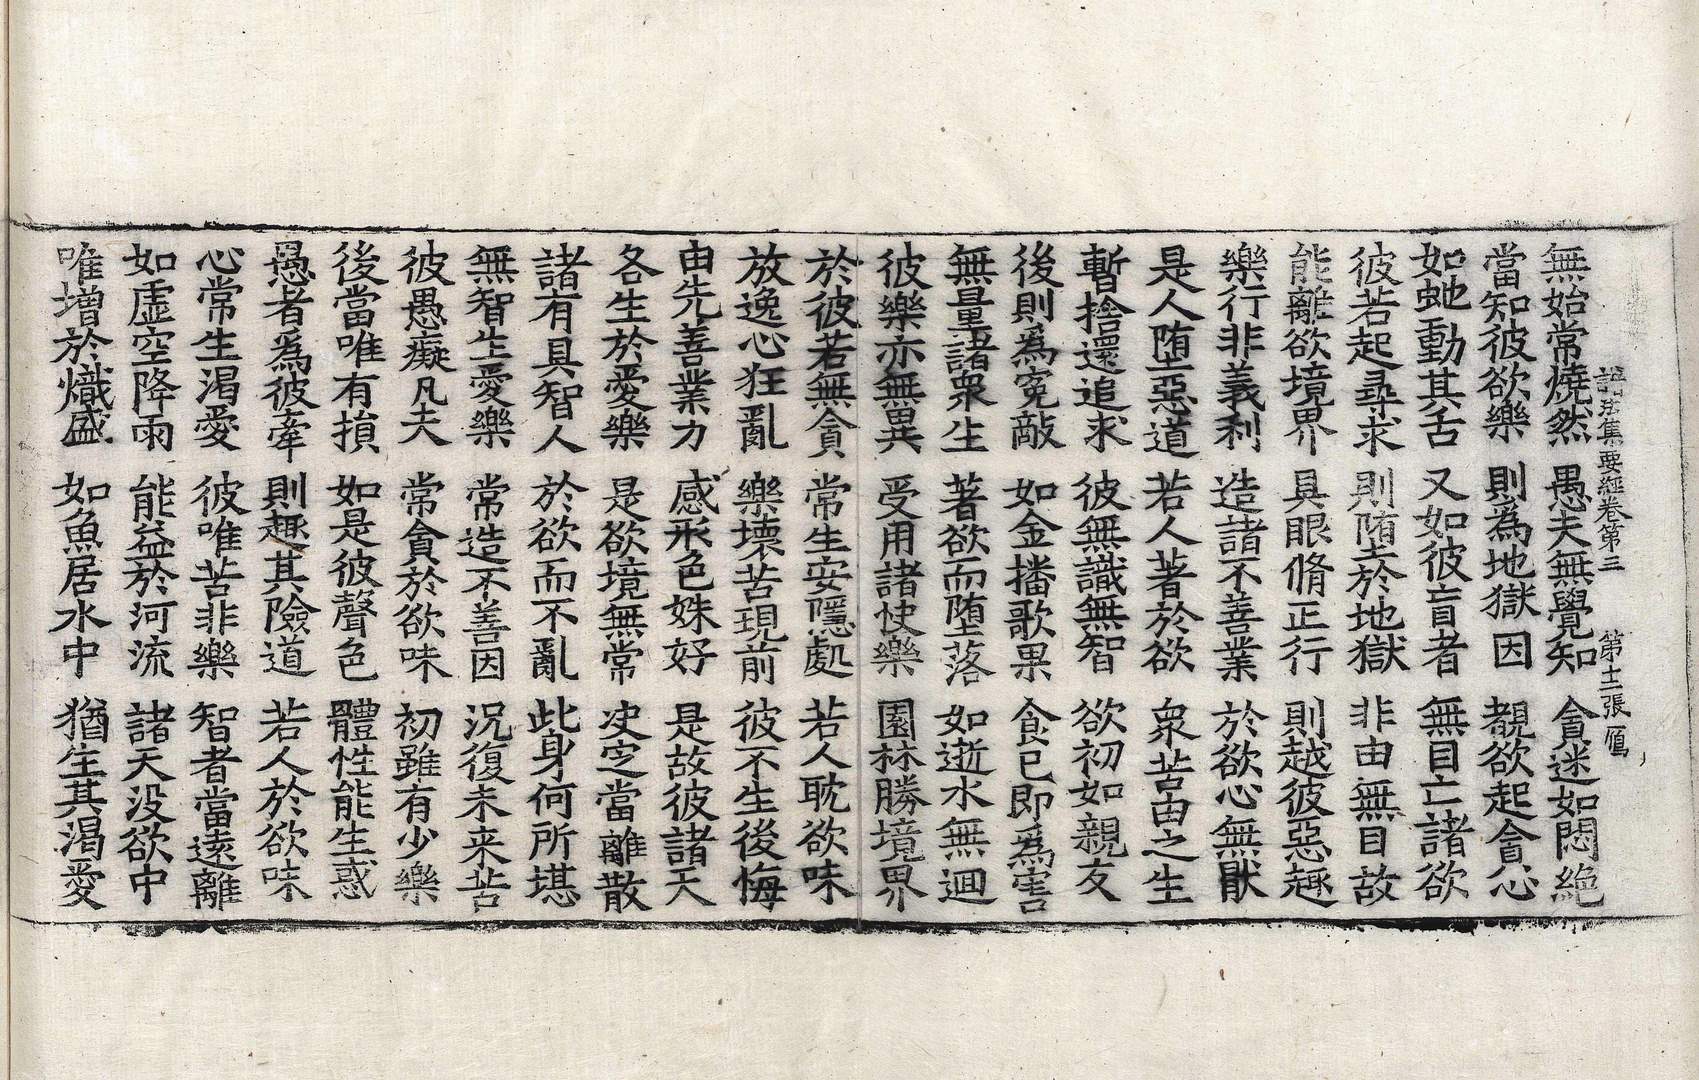 諸法集要經卷第三　第十二張　鴈
無始常燒然　愚夫無覺知　貪迷如悶絶
當知彼欲樂　則爲地獄因　覩欲起貪心
如虵動其舌　又如彼盲者　無目亡諸欲
彼若起尋求　則堕於地獄　非由無目故
能離欲境界　具眼脩正行　則越彼惡趣
樂行非義利　造諸不善業　於欲心無猒
是人堕惡道　若人著於欲　衆苦由之生
暫捨還追求　彼無識無智　欲初如親友
後則爲寃敵　如金播歌果　食已即爲害
無量諸衆生　著欲而堕落　如逝水無迴
彼樂亦無異　受用諸快樂　園林勝境界
於彼若無貪　常生安隱處　若人耽欲味
放逸心狂亂　樂壞苦現前　彼不生後悔
由先善業力　感形色姝好　是故彼諸天
各生於愛樂　是欲境無常　决定當離散
諸有具智人　於欲而不亂　此身何所堪
無智生愛樂　常造不善因　況復未来苦
彼愚癡凡夫　常貪於欲味　初雖有少樂
後當唯有損　如是彼聲色　體性能生惑
愚者爲彼牽　則趣其險道　若人於欲味
心常生渴愛　彼唯苦非樂　智者當遠離
如虛空降雨　能益於河流　諸天没欲中
唯增於熾盛　如魚居水中　猶生其渴愛